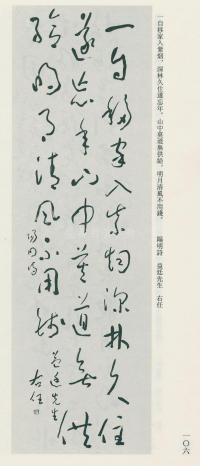 一自移家入紫烟，深林久住遂忘年。山中莫道無供給，明月清風不用錢。　陽明詩　益廷先生　右任
一〇六
一自移家入紫烟深林久住
遂忘年山中莫道無供
給明月清風不用錢
陽明詩
益廷先生
右任